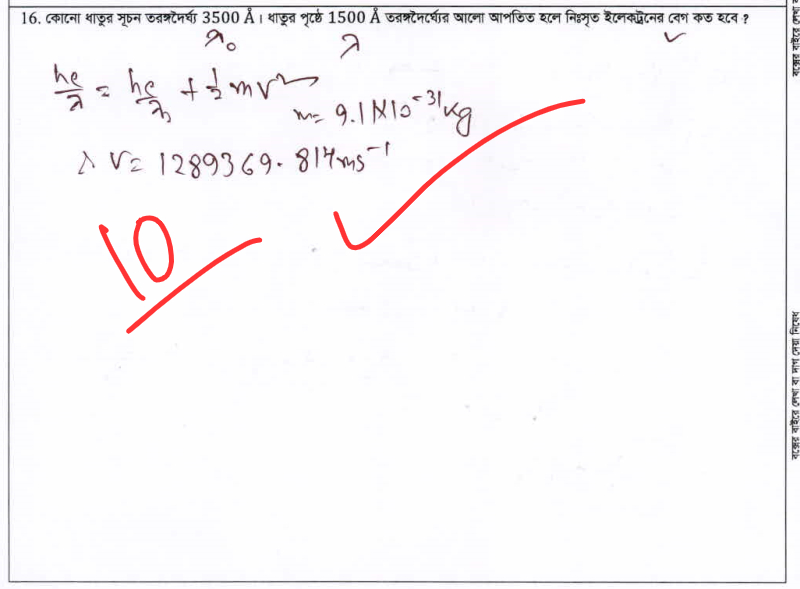 16. কোনো ধাতুর সূচন তরঙ্গদৈর্ঘ্য 3500 Å। ধাতুর পৃষ্ঠে 1500 Å তরঙ্গদৈর্ঘ্যের আলো আপতিত হলে নিঃসৃত ইলেকট্রনের বেগ কত হবে ?
λ₀ λ
hc/λ = hc/λ₀ + 1/2 mv²
m = 9.1×10⁻³¹ kg
∴ v = 1289369.814 ms⁻¹
10
বক্সের বাইরে লেখা বা দাগ দেয়া নিষেধ